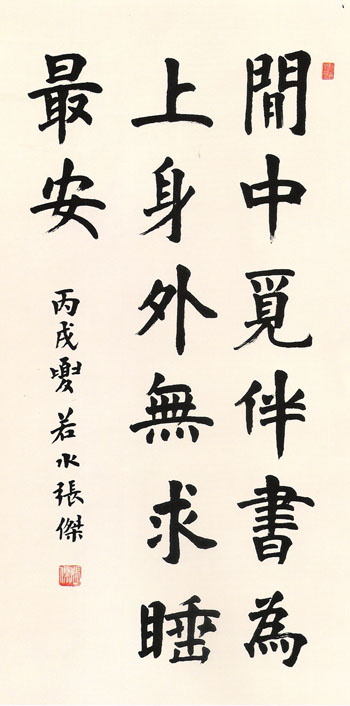 閒中覓伴書為
上身外無求睡
最安
丙戌夏若水張傑